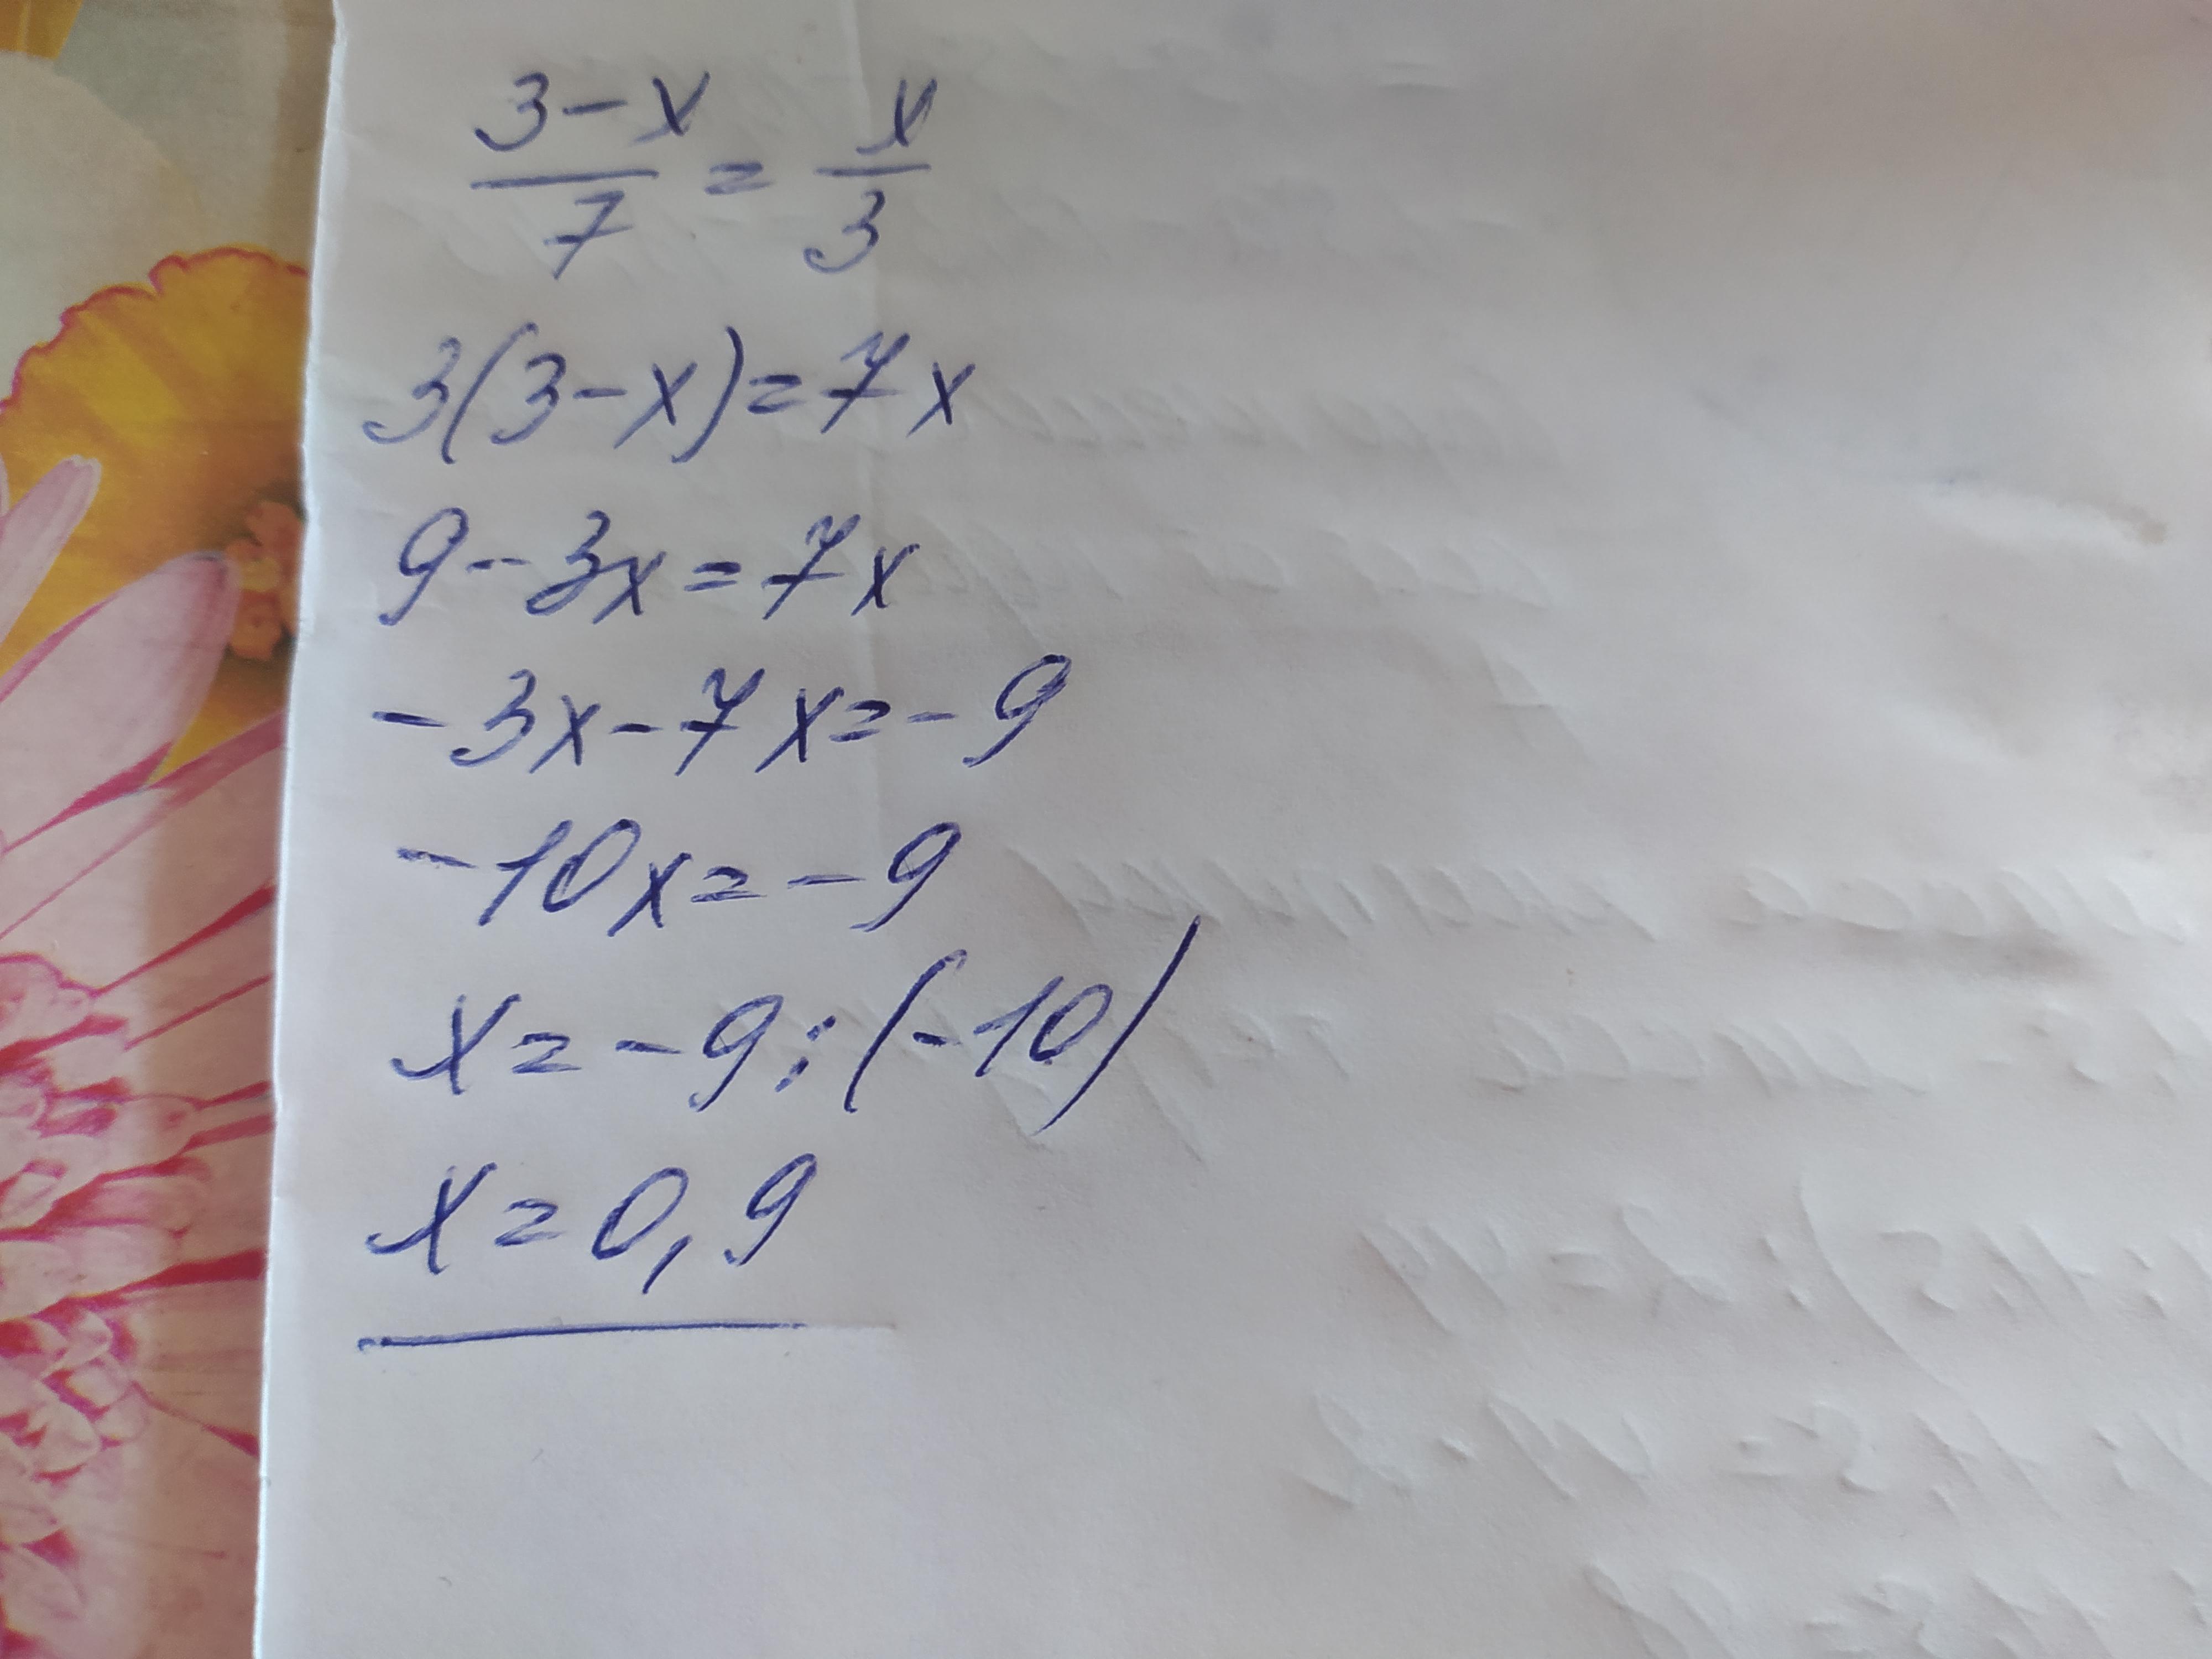 3-x/7 = x/3
3(3-x)=7x
9-3x=7x
-3x-7x=-9
-10x=-9
x=-9:(-10)
x=0,9